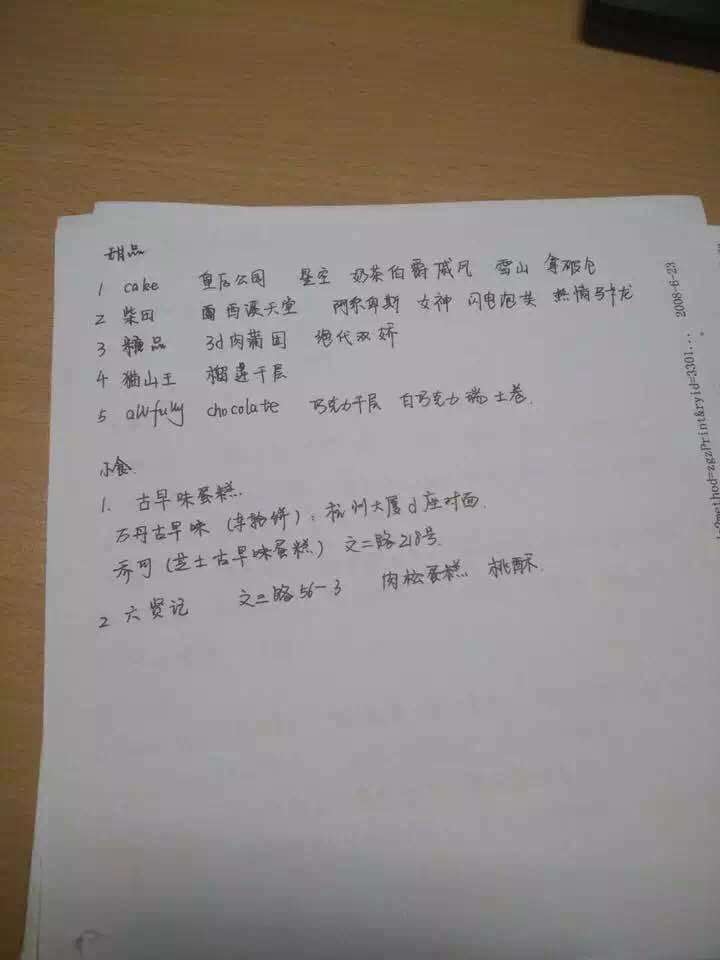 甜品
1 cake 皇后公园 星空 奶茶伯爵戚风 雪山 拿破仑
2 柴田 西溪天堂 阿尔卑斯 女神 闪电泡芙 热情马卡龙
3 糖品 3d肉葡国 绝代双娇
4 猫山王 榴莲千层
5 awfully chocolate 巧克力千层 白巧克力瑞士卷.
小食.
1. 古早味蛋糕.
万丹古早味 (车轮饼): 杭州大厦d座对面.
乔可 (芝士古早味蛋糕) 文二路218号.
2 六贤记 文三路56-3 肉松蛋糕 桃酥.
?method=zgzPrint&ryid=3301... 2008-6-23